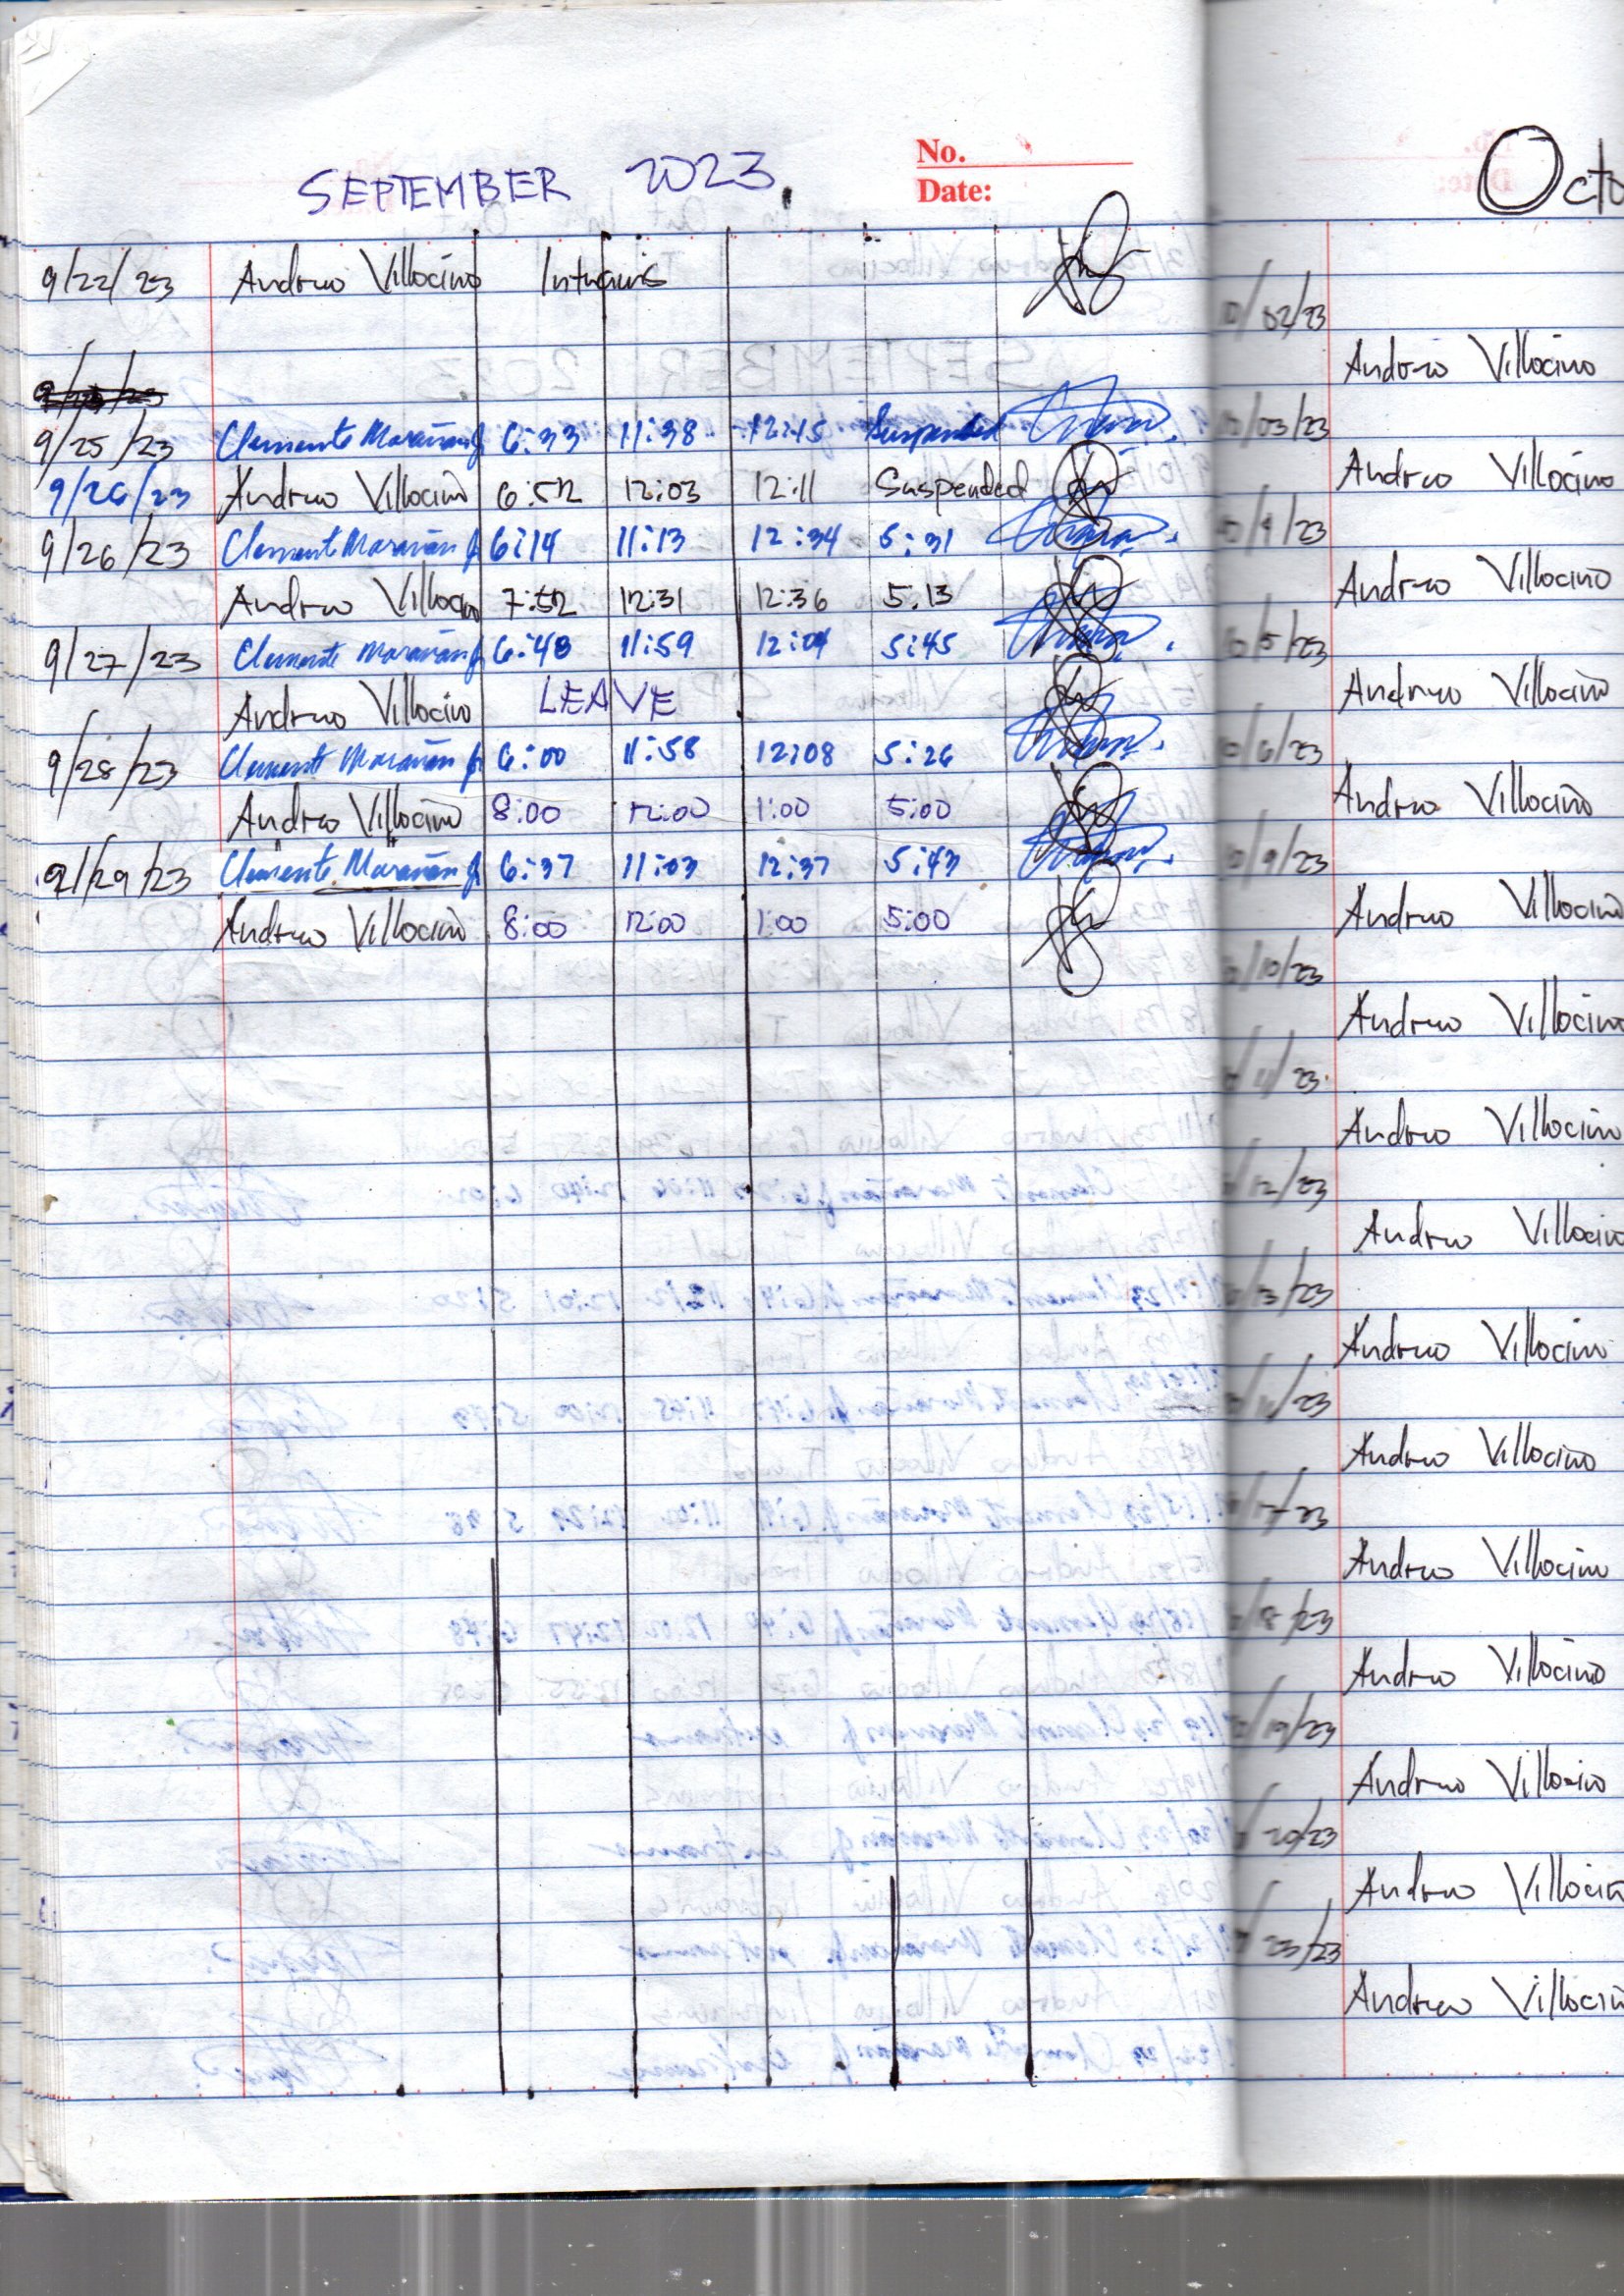 No.
Date:
SEPTEMBER 2023.
9/22/23 Andrew Villocino Intramuros
9/25/23 Clemente Marañan Jr 6:33 11:38 12:15 Suspended
9/26/23 Andrew Villocino 6:52 12:03 12:11 Suspended
9/26/23 Clemente Marañan Jr 6:14 11:13 12:34 5:31
Andrew Villocino 7:52 12:31 12:36 5:13
9/27/23 Clemente Marañan Jr 6:48 11:59 12:04 5:45
Andrew Villocino LEAVE
9/28/23 Clemente Marañan Jr 6:00 11:58 12:08 5:26
Andrew Villocino 8:00 12:00 1:00 5:00
9/29/23 Clemente Marañan Jr 6:37 11:03 12:37 5:43
Andrew Villocino 8:00 12:00 1:00 5:00
Octo
10/02/23
Andrew Villocino
10/03/23
Andrew Villocino
10/4/23
Andrew Villocino
10/5/23
Andrew Villocino
10/6/23
Andrew Villocino
10/9/23
Andrew Villocino
10/10/23
Andrew Villocino
10/11/23
Andrew Villocino
10/12/23
Andrew Villocino
10/13/23
Andrew Villocino
/23
Andrew Villocino
10/17/23
Andrew Villocino
10/18/23
Andrew Villocino
10/19/23
Andrew Villocino
20/23
Andrew Villocino
23/23
Andrew Villocino